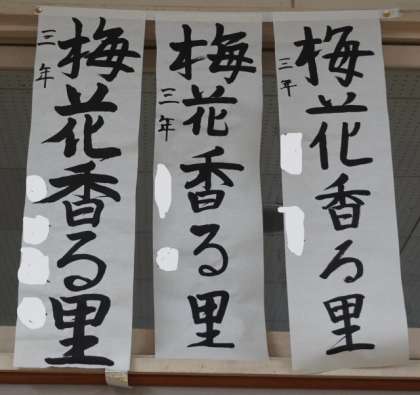 梅花香る里
三年
梅花香る里
三年
梅花香る里
三年